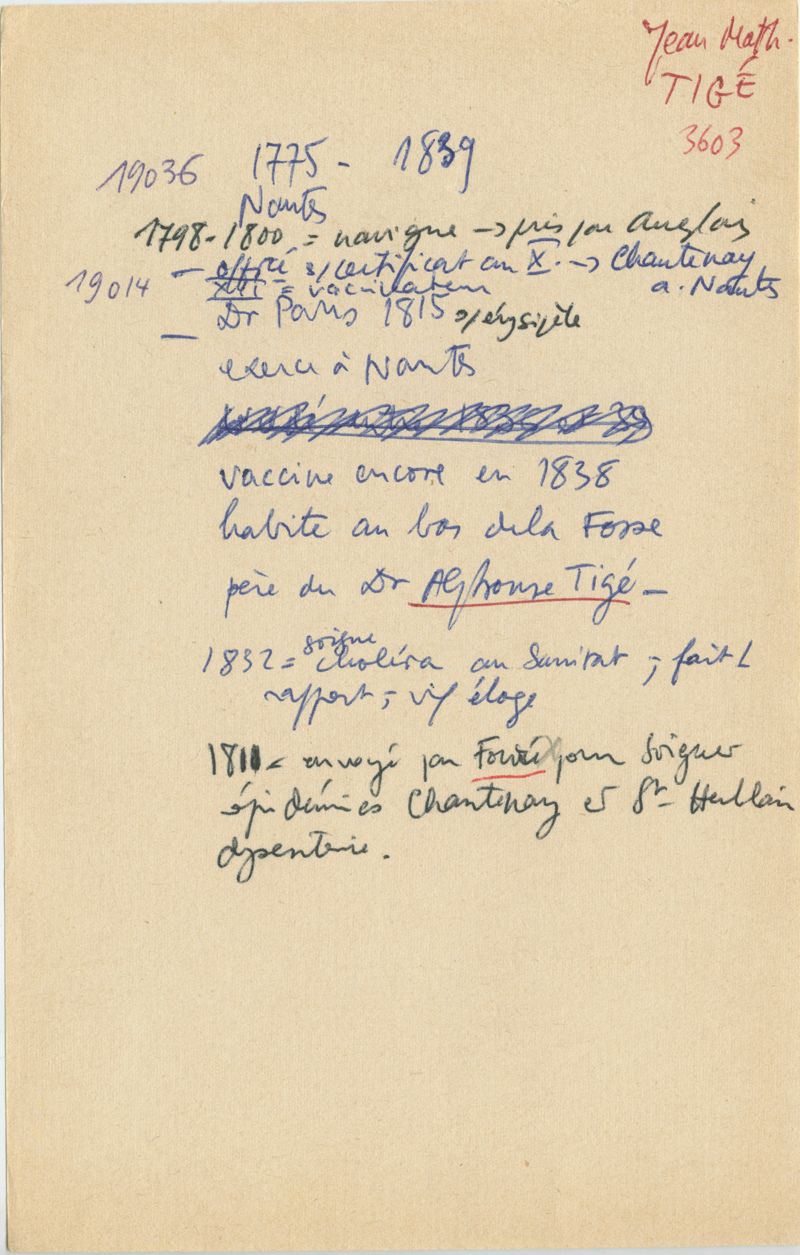 Jean Math.
TIGÉ
3603
19036 1775 - 1839
Nantes
1798-1800 = navigue → pris par Anglais
- offic s/certificat an X. → Chantenay
19014 XIII = vaccinateur a. Nantes
- Dr Paris 1815 s/érysipèle
exerce à Nantes
vaccine encore en 1838
habite au bas dela Fosse
père du Dr Alphonse Tigé -
soigne
1832 = choléra au Sanitat ; fait 1
rapport ; vif éloge
1811 = envoyé par Fouré pour soigner
épidémies Chantenay et St-Herblain
dysenterie.